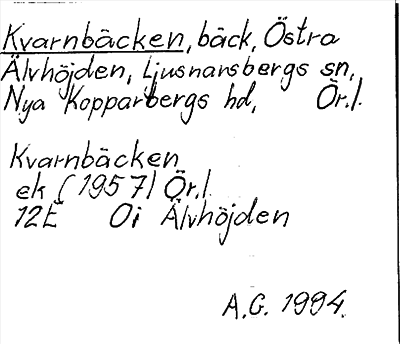 Kvarnbäcken, bäck, Östra
Älvhöjden, Ljusnarsbergs sn,
Nya Kopparbergs hd, Ör.l.
Kvarnbäcken
ek (1957) Ör.l.
12E 0i Älvhöjden
A.G. 1994.